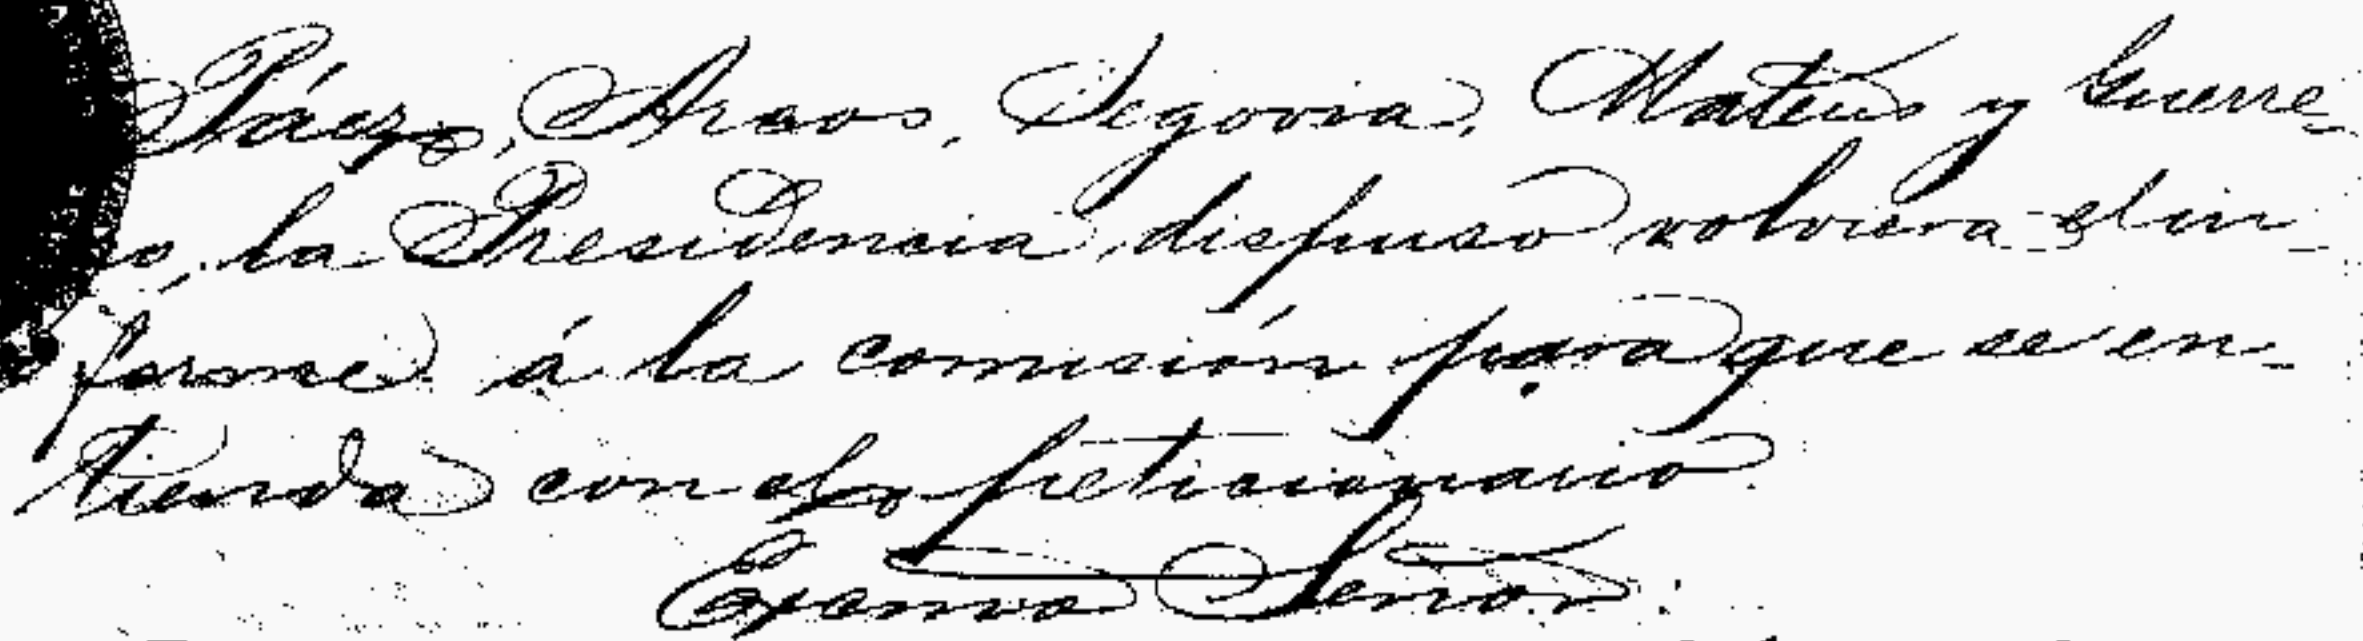 Páez, Araos, Segovia, Mateus y Guerre-
ro, la Presidencia, dispuso volviera el in-
forme á la comisión para que se en-
tienda con el peticionario.
Excmo Señor: